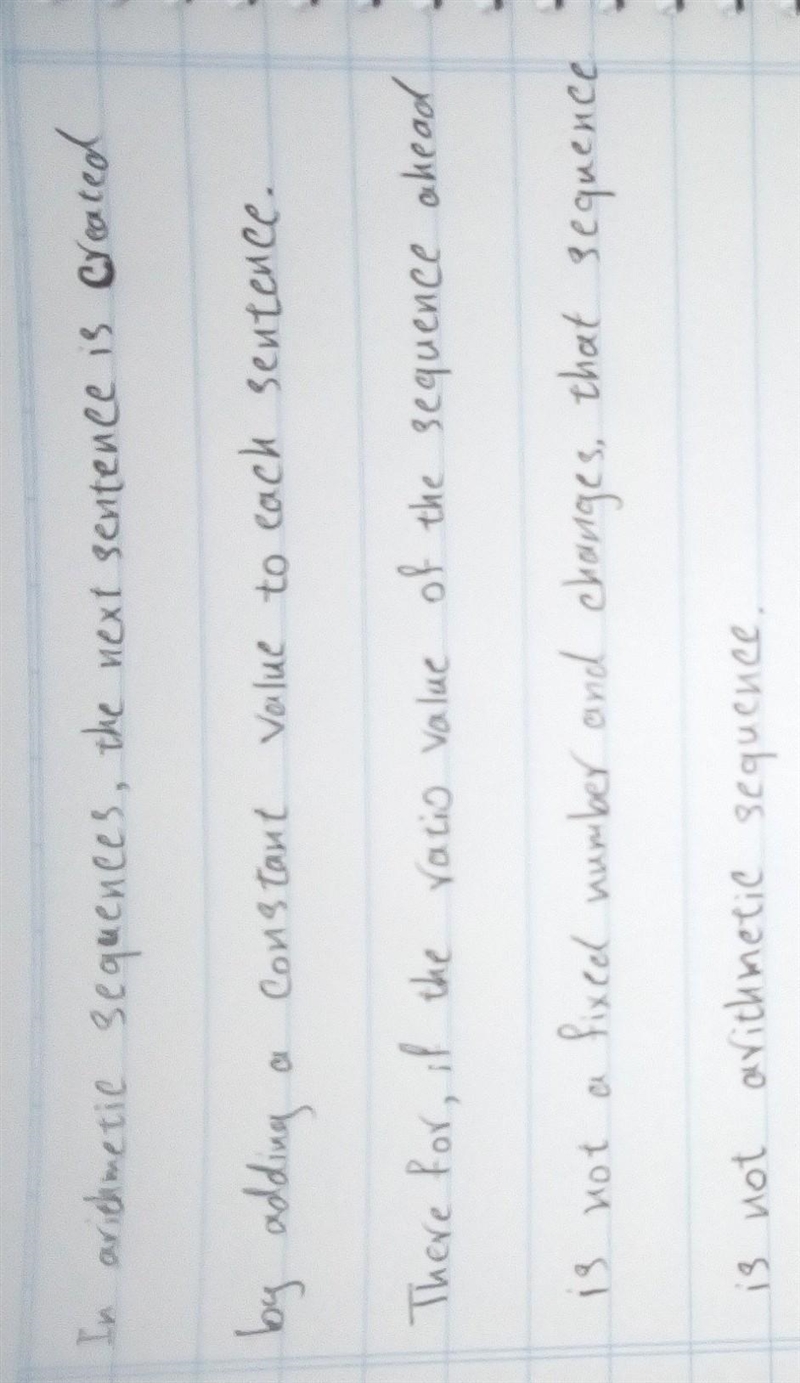 In arithmetic sequences, the next sentence is created
by adding a constant value to each sentence.
There for, if the ratio value of the sequence ahead
is not a fixed number and changes, that sequence
is not arithmetic sequence.